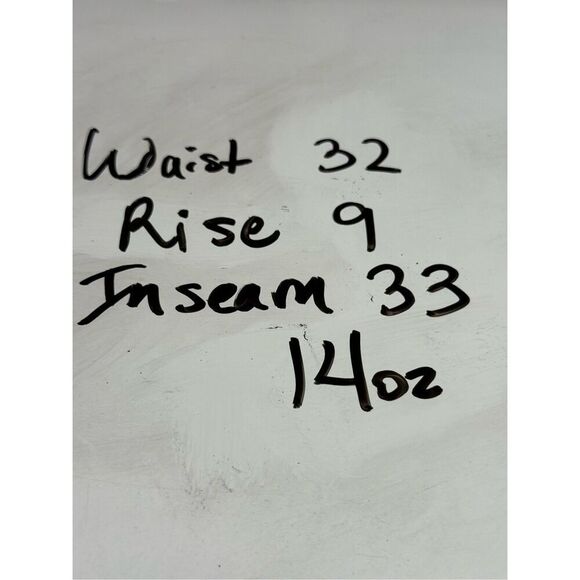 Waist 32
Rise 9
Inseam 33
14oz